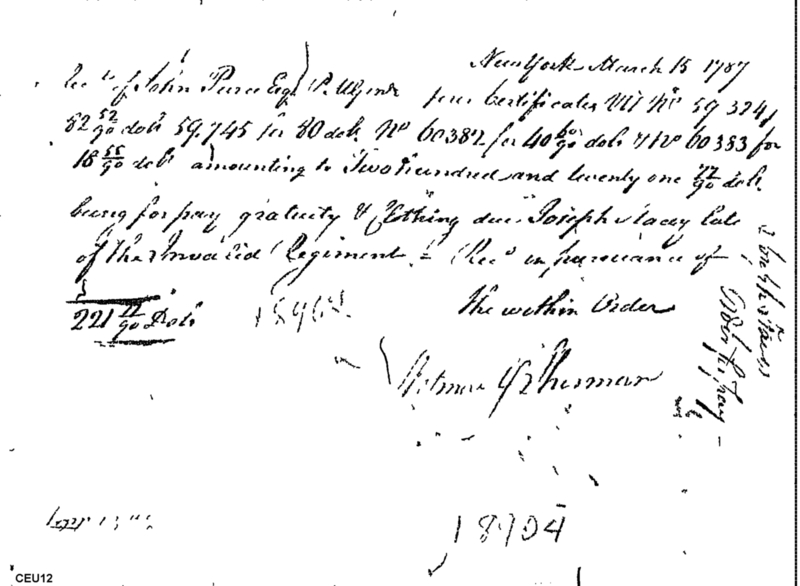 New York March 15 1787
Rec.d of John Pierce Esq. P. M. Gen.l four Certificates Viz No 59,324 for
82 52/90 dols 59,745 for 80 dols. No 60382 for 40 60/90 dols & No 60383 for
18 55/90 dols amounting to Two hundred and twenty one 77/90 dols.
being for pay gratuity & Clothing due Joseph Stacey late
of the Invalid Regiment. Rec.d in pursuance of
the within Order
221 77/90 Dols
Sherman
Joseph Stacey
Order for pay
18904
CEU12